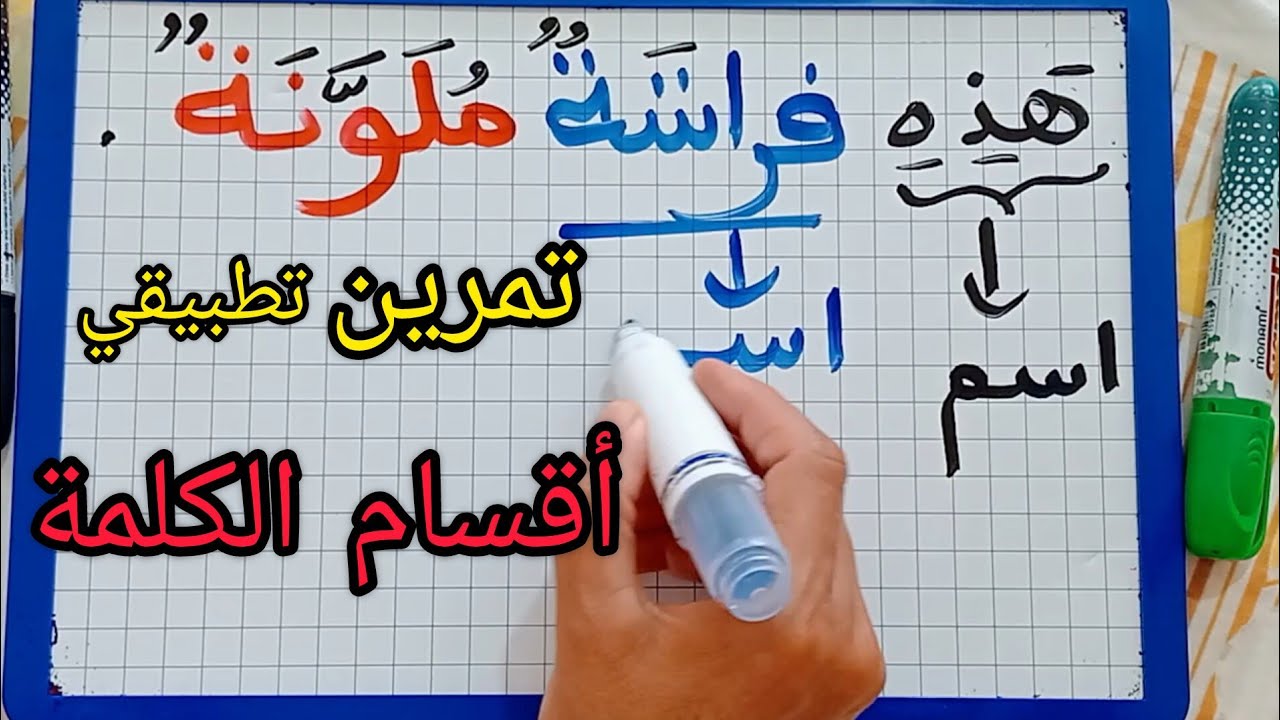 هَذِهِ فراشَةٌ مُلَوَّنَةٌ.
اسم اسـ
تمرين تطبيقي
أقسام الكلمة
MONAMI